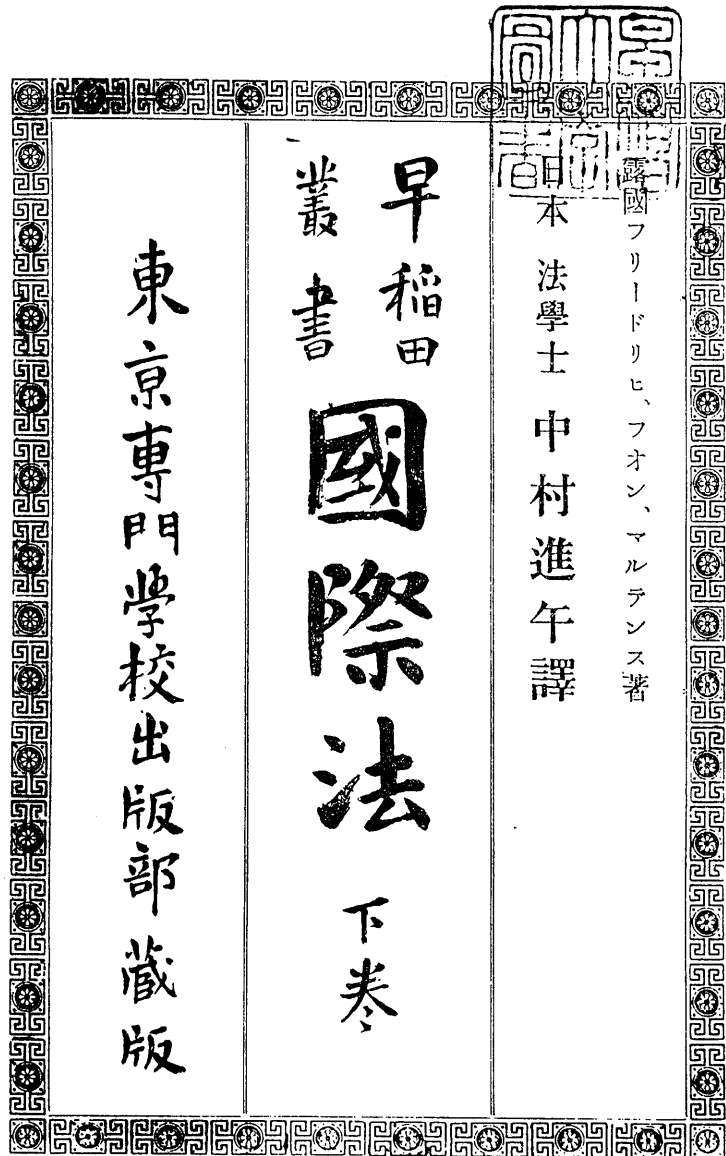 露國フリードリヒ、フオン、マルテンス著
日本 法學士 中村進午譯
早稲田
叢書
國際法 下巻
東京専門学校出版部蔵版